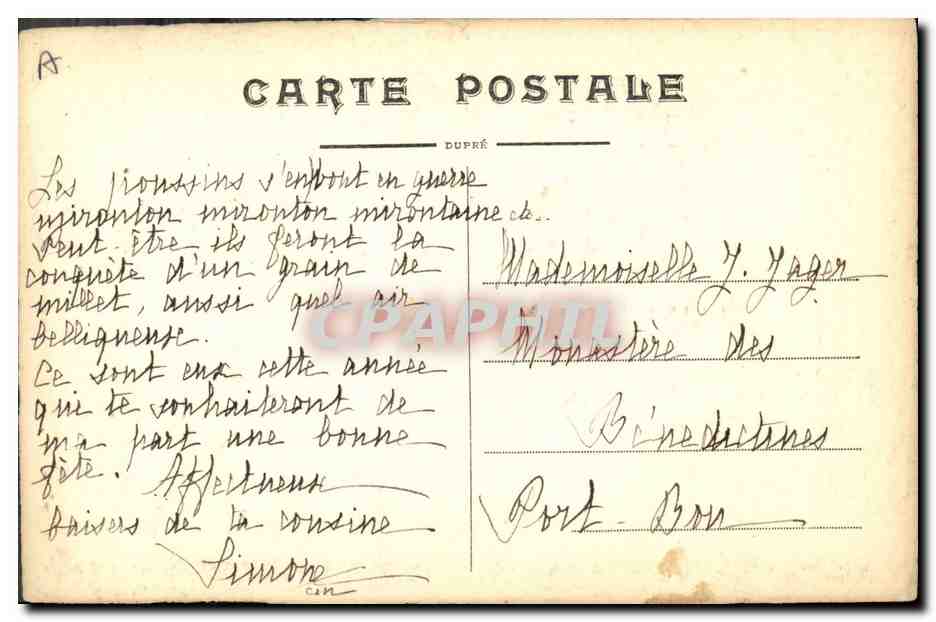 A
CARTE POSTALE
DUPRÉ
Les poussins s'en vont en guerre
mironton mironton mirontaine etc..
Peut-être ils feront la
conquête d'un grain de
millet, aussi quel air
belliqueux.
Ce sont eux cette année
qui te souhaiteront de
ma part une bonne
fête. Affectueux
baisers de ta cousine
Simone
Mademoiselle J. Jager
Monastère des
Bénédictines
Port-Bou
CPAPHIL